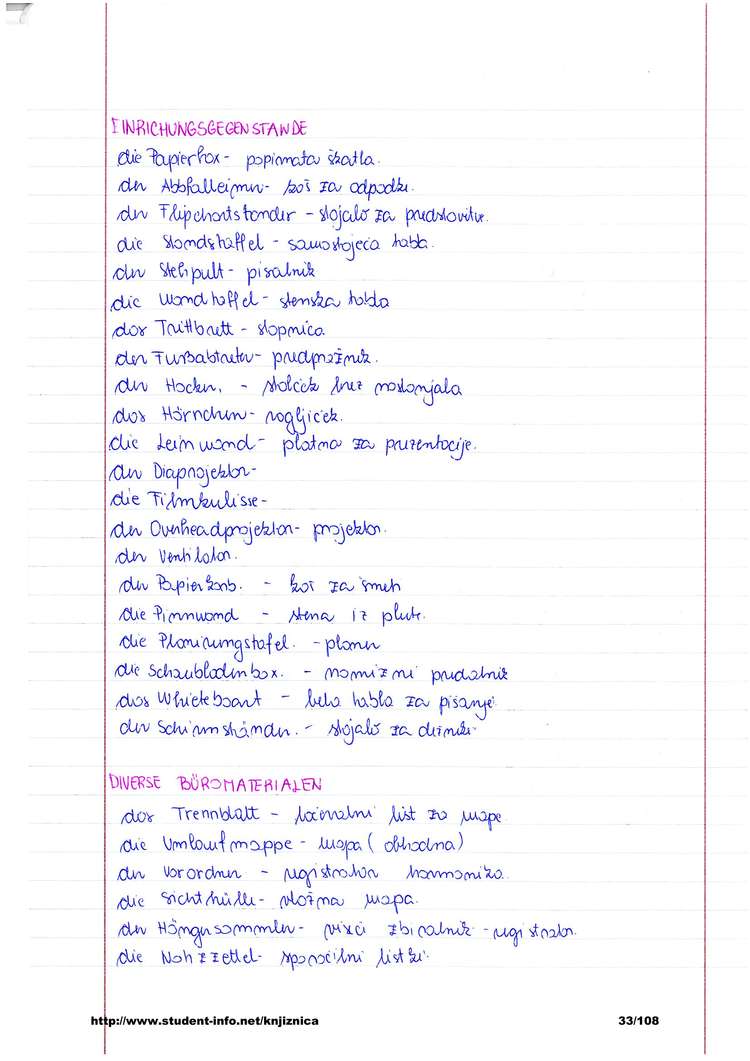 EINRICHUNGSGEGENSTANDE
die Papierbox - papirnata škatla.
der Abbfalleimer - koš za odpadke.
der Flipchartständer - stojalo za predstavitve.
die Standstaffel - samostoječa tabla.
der Stehpult - pisalnik
die Wandtaffel - stenska tabla
das Trittbrett - stopnica.
der Fußabtreter - predpražnik.
der Hocker. - stolček brez naslonjala
das Hörnchen - rogljiček.
die Leinwand - platno za prezentacije.
der Diaprojektor -
die Filmkulisse -
der Overheadprojektor - projektor.
der Ventilator.
der Papierkorb. - koš za smeti
die Pinnwand - stena iz plute.
die Planungstafel. - planer
die Schaubladenbox. - namizni predalnik
das Whieteboart - bela tabla za pisanje
der Schirmständer. - stojalo za dežnike
DIVERSE BÜROMATERIALEN
das Trennblatt - ločevalni list za mape
die Umlaufmappe - mapa (obhodna)
der Vorordner - registrator harmonika.
die Sichthülle - vložna mapa.
der Hängesammler - viseči zbiralnik - registrator.
die Nahzzettel - sporočilni listki.
http://www.student-info.net/knjiznica 33/108